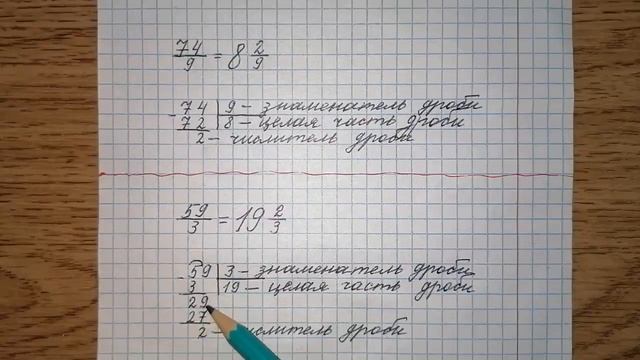 74/9 = 8 2/9
- 74 | 9 - знаменатель дроби
72 | 8 - целая часть дроби
2 - числитель дроби
59/3 = 19 2/3
- 59 | 3 - знаменатель дроби
3 | 19 - целая часть дроби
29
27
2 - дроби